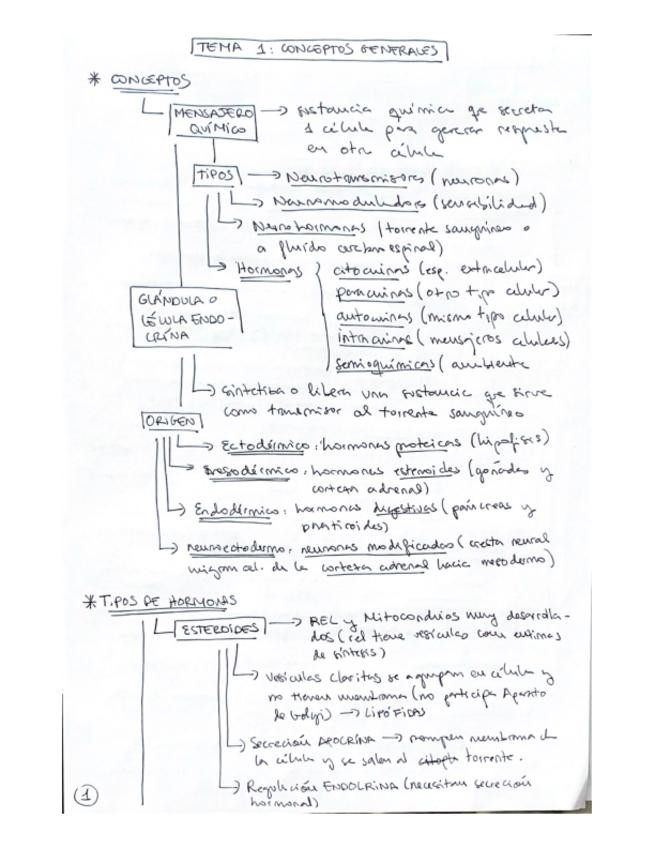 TEMA 1: CONCEPTOS GENERALES
* CONCEPTOS
MENSAJERO QUÍMICO → sustancia química que secretan
1 célula para generar respuesta
en otra célula
TIPOS → Neurotransmisores (neuronas)
→ Neuromoduladores (sensibilidad)
→ Neurohormonas (torrente sanguíneo o
a fluido cerebroespinal)
→ Hormonas { citocrinas (esp. extracelular)
paracrinas (otro tipo celular)
autocrinas (mismo tipo celular)
intracrinas (mensajeros celulares)
semioquímicas (ambiente
GLÁNDULA O
CÉLULA ENDO-
CRÍNA
→ Sintetiza o libera una sustancia que sirve
como transmisor al torrente sanguíneo
ORIGEN
→ Ectodérmico: hormonas proteicas (hipófisis)
→ Mesodérmico: hormonas esteroides (gónadas y
corteza adrenal)
→ Endodérmico: hormonas digestivas (páncreas y
paratiroides)
→ neuroectodermo: neuronas modificadas (cresta neural
migran cel. de la corteza adrenal hacia mesodermo)
* TIPOS DE HORMONAS
ESTEROIDES → REL y Mitocondrias muy desarrolla-
dos (rel tiene vesículas con enzimas
de síntesis)
→ vesículas claritas se agrupan en célula y
no tienen membrana (no participa Aparato
de Golgi) → LIPÓFIDAS
→ Secreción APOCRÍNA → rompen membrana de
la célula y se salen al torrente.
→ Regulación ENDOCRINA (necesitan secreción
hormonal)
1